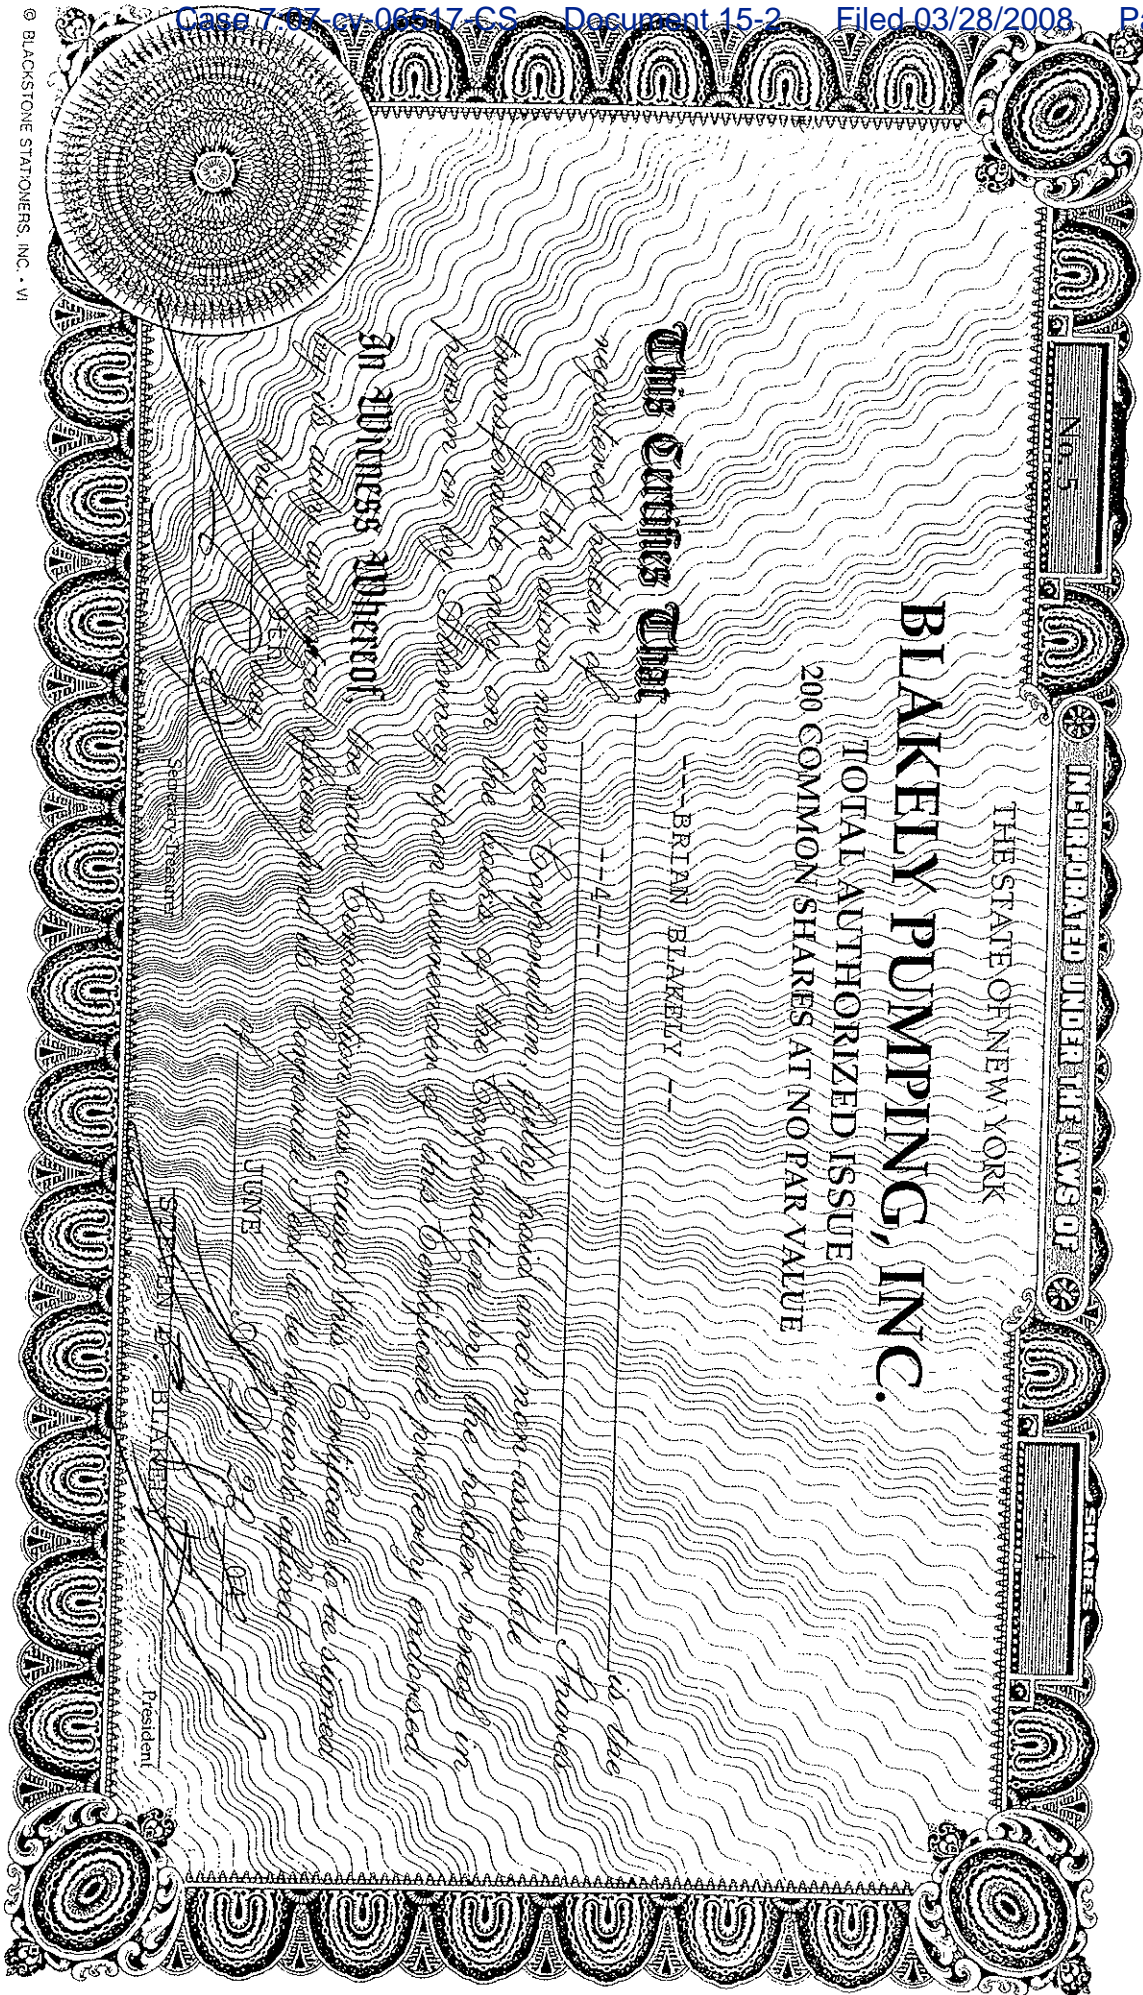 Case 7:07-cv-06517-CS Document 15-2 Filed 03/28/2008 Pa
No. 5
INCORPORATED UNDER THE LAWS OF
SHARES
4
THE STATE OF NEW YORK
BLAKELY PUMPING, INC.
TOTAL AUTHORIZED ISSUE
200 COMMON SHARES AT NO PAR VALUE
This Certifies That ---BRIAN BLAKELY --- is the
registered holder of ---4--- Shares
of the above named Corporation, fully paid and non-assessable
transferable only on the books of the Corporation by the holder hereof in
person or by Attorney upon surrender of this Certificate properly endorsed.
In Witness Whereof, the said Corporation has caused this Certificate to be signed
by its duly authorized officers and its Corporate Seal to be hereunto affixed
this day of JUNE
Secretary-Treasurer
STEVEN E. BLAKELY President
© BLACKSTONE STATIONERS, INC. • VI